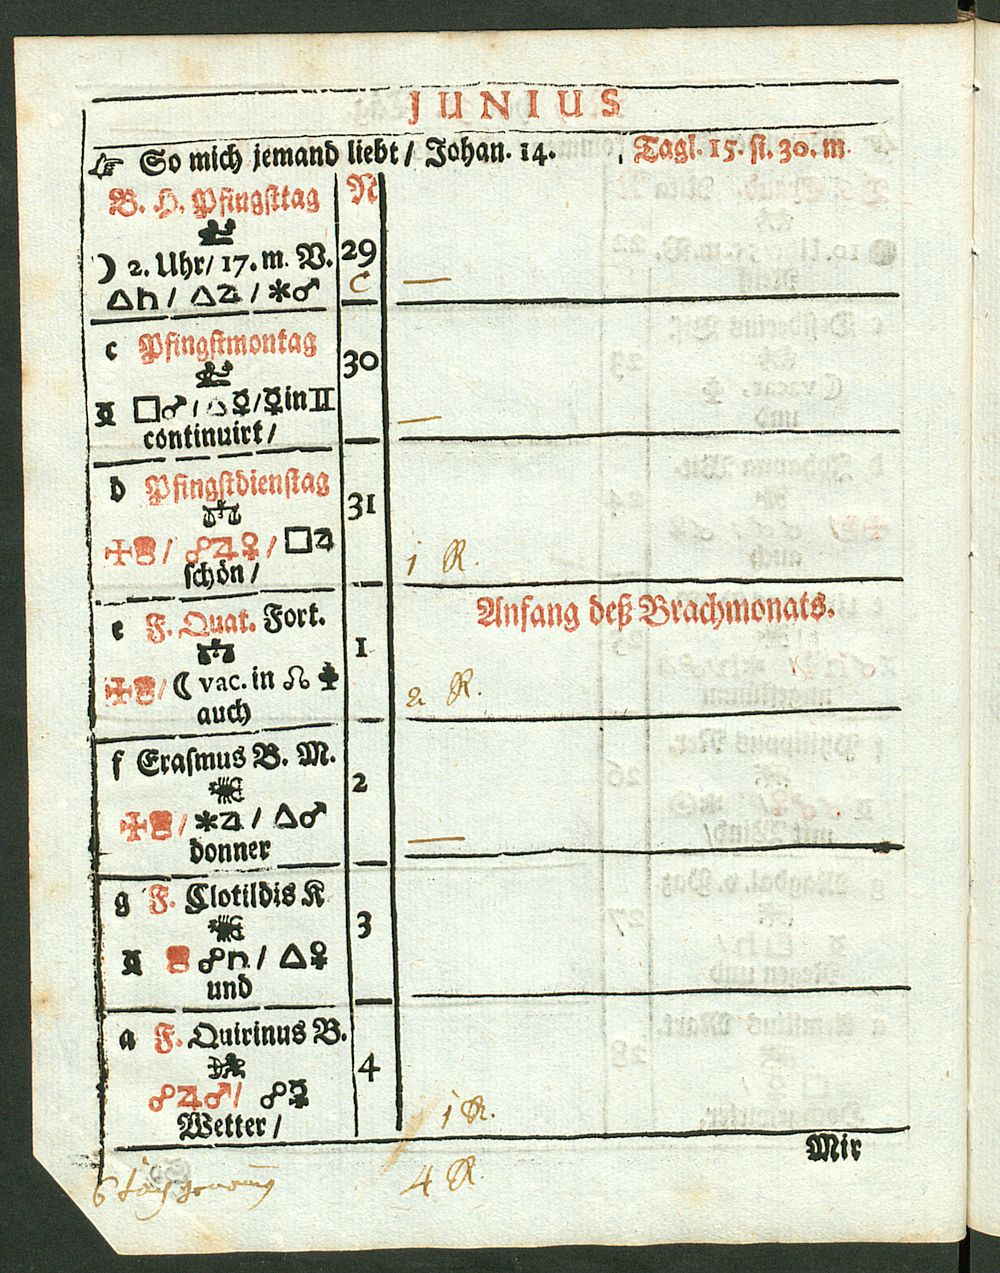 JUNIUS
☞ So mich jemand liebt / Johan. 14. Tagl. 15. st. 30. m.
B. H. Pfingsttag N
☽ 2. Uhr / 17. m. V. 29
△♄ / △♃ / ⚹♂ C —
c Pfingstmontag 30
□♂ / △☿ / ☿ in ♊ —
continuirt /
d Pfingstdienstag 31
♎
/ ☍♃♀ / □♃
schön / 1 R.
e F. Quat. Fort. 1 Anfang deß Brachmonats.
♎
/ ☾ vac. in ☊
auch 2 R.
f Erasmus B. M. 2
♏
/ ⚹♃ / △♂ —
donner
g F. Clotildis K 3
♏
☍♄ / △♀
und
a F. Quirinus B. 4
♐
☍♃♂ / ☍☿
Wetter / 1 R.
Mir
6 4 R.